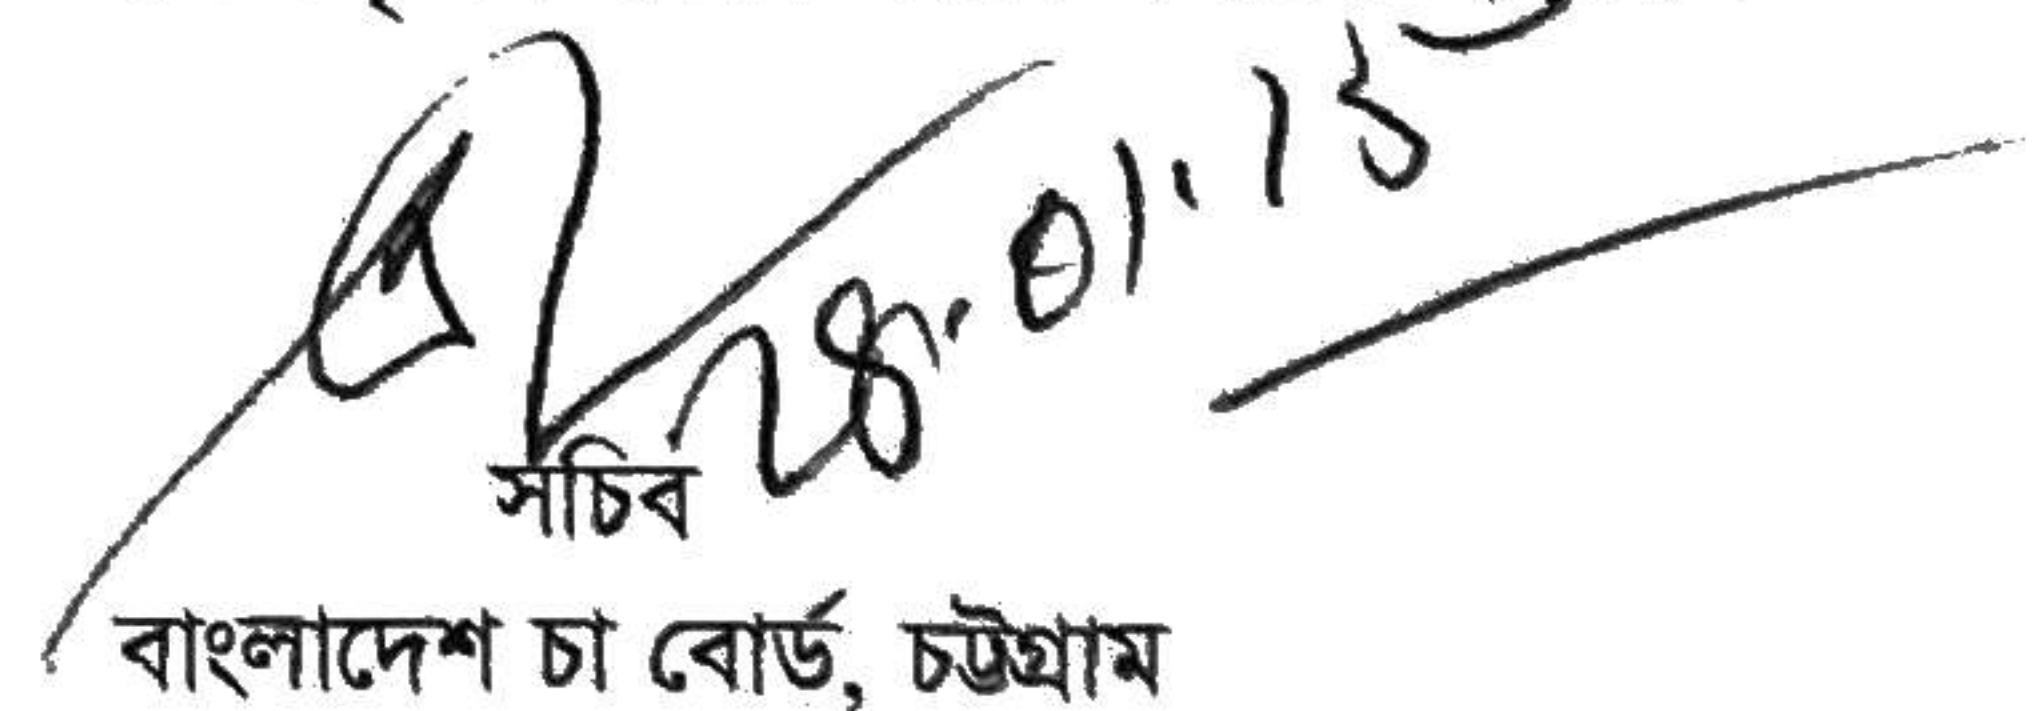 28.01.15
সচিব
বাংলাদেশ চা বোর্ড, চট্টগ্রাম